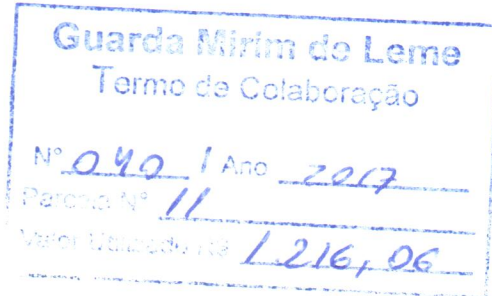 Guarda Mirim de Leme
Termo de Colaboração
Nº 040 / Ano 2017
Parcela Nº 11
Valor Utilizado R$ 1.216,06